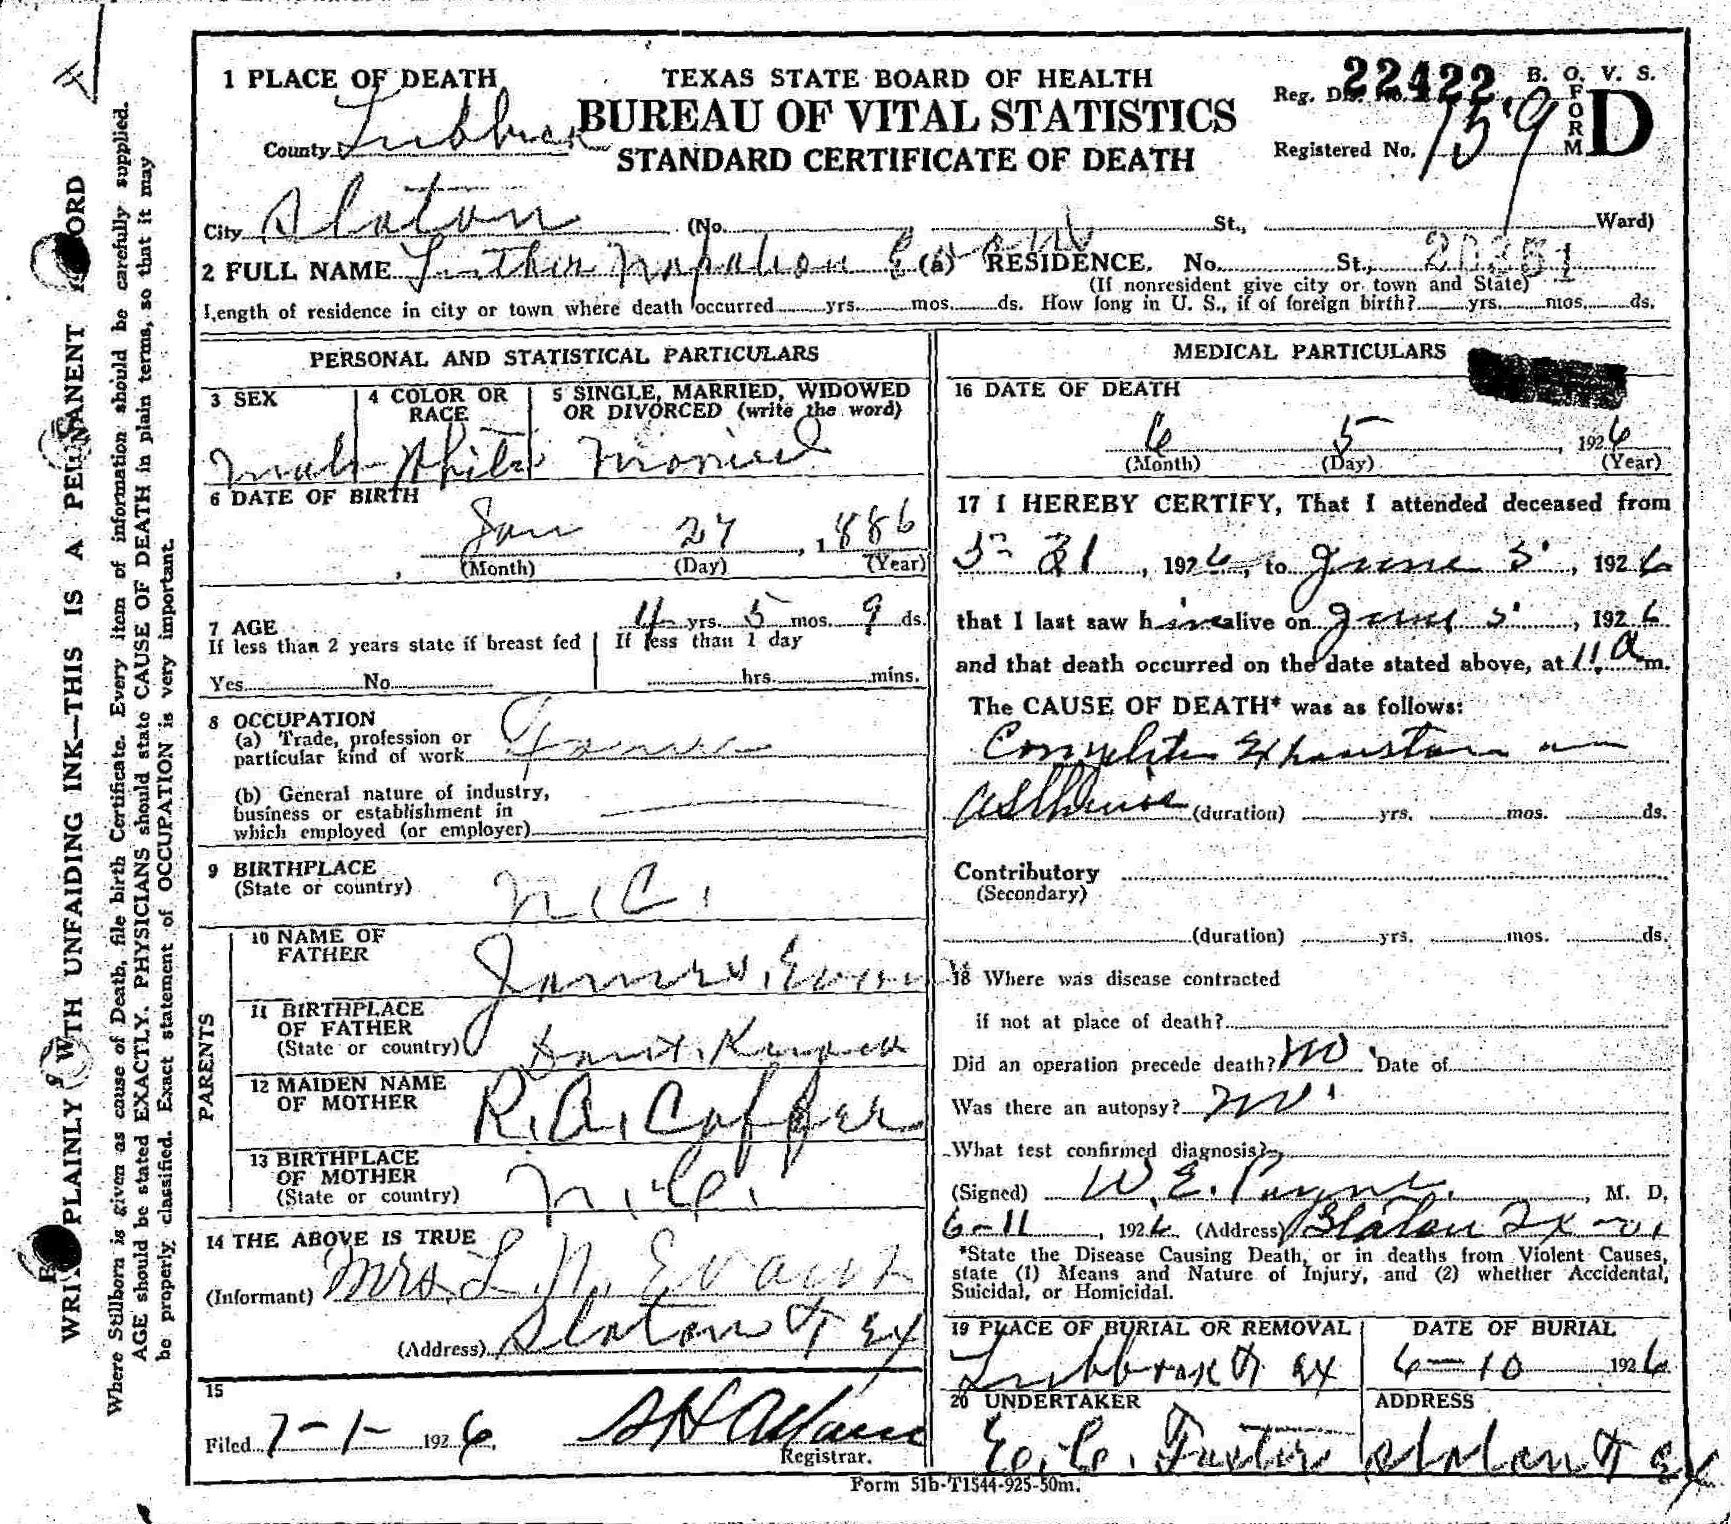 1 PLACE OF DEATH
TEXAS STATE BOARD OF HEALTH
BUREAU OF VITAL STATISTICS
STANDARD CERTIFICATE OF DEATH
Reg. Dis. No. 22422
B. O. V. S.
FORM D
Registered No. 159
County Lubbock
City Slaton (No. St., Ward)
2 FULL NAME Luther Napoleon Evans (a) RESIDENCE. No. St., 20351
(If nonresident give city or town and State)
Length of residence in city or town where death occurred yrs. mos. ds. How long in U. S., if of foreign birth? yrs. mos. ds.
PERSONAL AND STATISTICAL PARTICULARS
3 SEX
4 COLOR OR RACE
5 SINGLE, MARRIED, WIDOWED OR DIVORCED (write the word)
Male White Married
6 DATE OF BIRTH
Jan 27, 1886
(Month) (Day) (Year)
7 AGE yrs. 5 mos. 9 ds.
If less than 2 years state if breast fed
If less than 1 day
Yes No
hrs. mins.
8 OCCUPATION
(a) Trade, profession or
particular kind of work
(b) General nature of industry,
business or establishment in
which employed (or employer)
9 BIRTHPLACE
(State or country) N.C.
10 NAME OF FATHER James Evans
11 BIRTHPLACE
OF FATHER
(State or country)
12 MAIDEN NAME
OF MOTHER R. A.
13 BIRTHPLACE
OF MOTHER
(State or country) N.C.
PARENTS
14 THE ABOVE IS TRUE
(Informant) Mrs. L. N. Evans
(Address) Slaton Tex
15
Filed 7-1- 1926.
Registrar.
MEDICAL PARTICULARS
16 DATE OF DEATH
6 5, 1926
(Month) (Day) (Year)
17 I HEREBY CERTIFY, That I attended deceased from
5- 31, 1926, to June 5, 1926
that I last saw him alive on June 5, 1926
and that death occurred on the date stated above, at 11 a m.
The CAUSE OF DEATH* was as follows:
Complete Exhaustion
(duration) yrs. mos. ds.
Contributory
(Secondary)
(duration) yrs. mos. ds.
18 Where was disease contracted
if not at place of death?
Did an operation precede death? no Date of
Was there an autopsy? no
What test confirmed diagnosis?
(Signed) W. E. Payne, M. D.
6-11, 1926 (Address) Slaton Tex
*State the Disease Causing Death, or in deaths from Violent Causes,
state (1) Means and Nature of Injury, and (2) whether Accidental,
Suicidal, or Homicidal.
19 PLACE OF BURIAL OR REMOVAL
DATE OF BURIAL
Lubbock Tex 6-10 1926
20 UNDERTAKER
ADDRESS
E. C. Foster Slaton Tex
Form 51b-T1544-925-50m.
WRITE PLAINLY WITH UNFAIDING INK—THIS IS A PERMANENT RECORD
Where Stillborn is given as cause of Death, file birth Certificate. Every item of information should be carefully supplied.
AGE should be stated EXACTLY. PHYSICIANS should state CAUSE OF DEATH in plain terms, so that it may
be properly classified. Exact statement of OCCUPATION is very important.